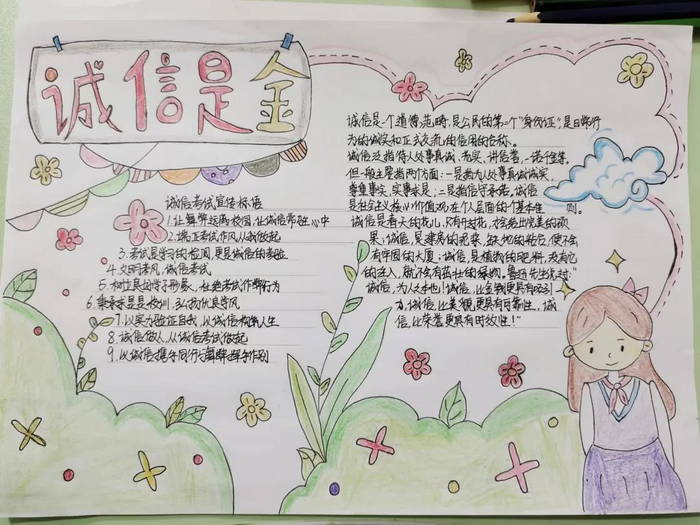 诚信是金
诚信考试宣传标语
1.让舞弊远离校园,让诚信常驻心中
2.端正考试作风从我做起
3.考试是学习的检阅,更是诚信的考验
4.文明考风,诚信考试
5.树立良好学子形象,杜绝考试作弊行为
6.秉承求是是校训,弘扬优良考风
7.以实力验证自我,以诚信构筑人生
8.诚信做人,从诚信考试做起
9.以诚信携手同行,与舞弊挥手作别
诚信是一个道德范畴,是公民的第二个"身份证",是日常行
为的诚实和正式交流的信用的合称。
诚信泛指待人处事真诚、老实、讲信誉,一诺千金等。
但一般主要指两个方面:一是指为人处事真诚诚实,
尊重事实,实事求是,二是指信守承诺。诚信
是社会主义核心价值观在个人层面的个基本准则。
诚信是春天的花儿,只有开花,才会结出完美的硕
果;诚信是建房的泥浆,缺了他的粘合,便不会
有牢固的大厦;诚信是植物的肥料,没有它
的注入,就不会有茁壮的绿物。鲁迅先生说过:"
诚信,为人之本也!诚信,比金钱更具有吸引
力,诚信,比美貌更具有可靠性,诚
信,比荣誉更具有时效性!"